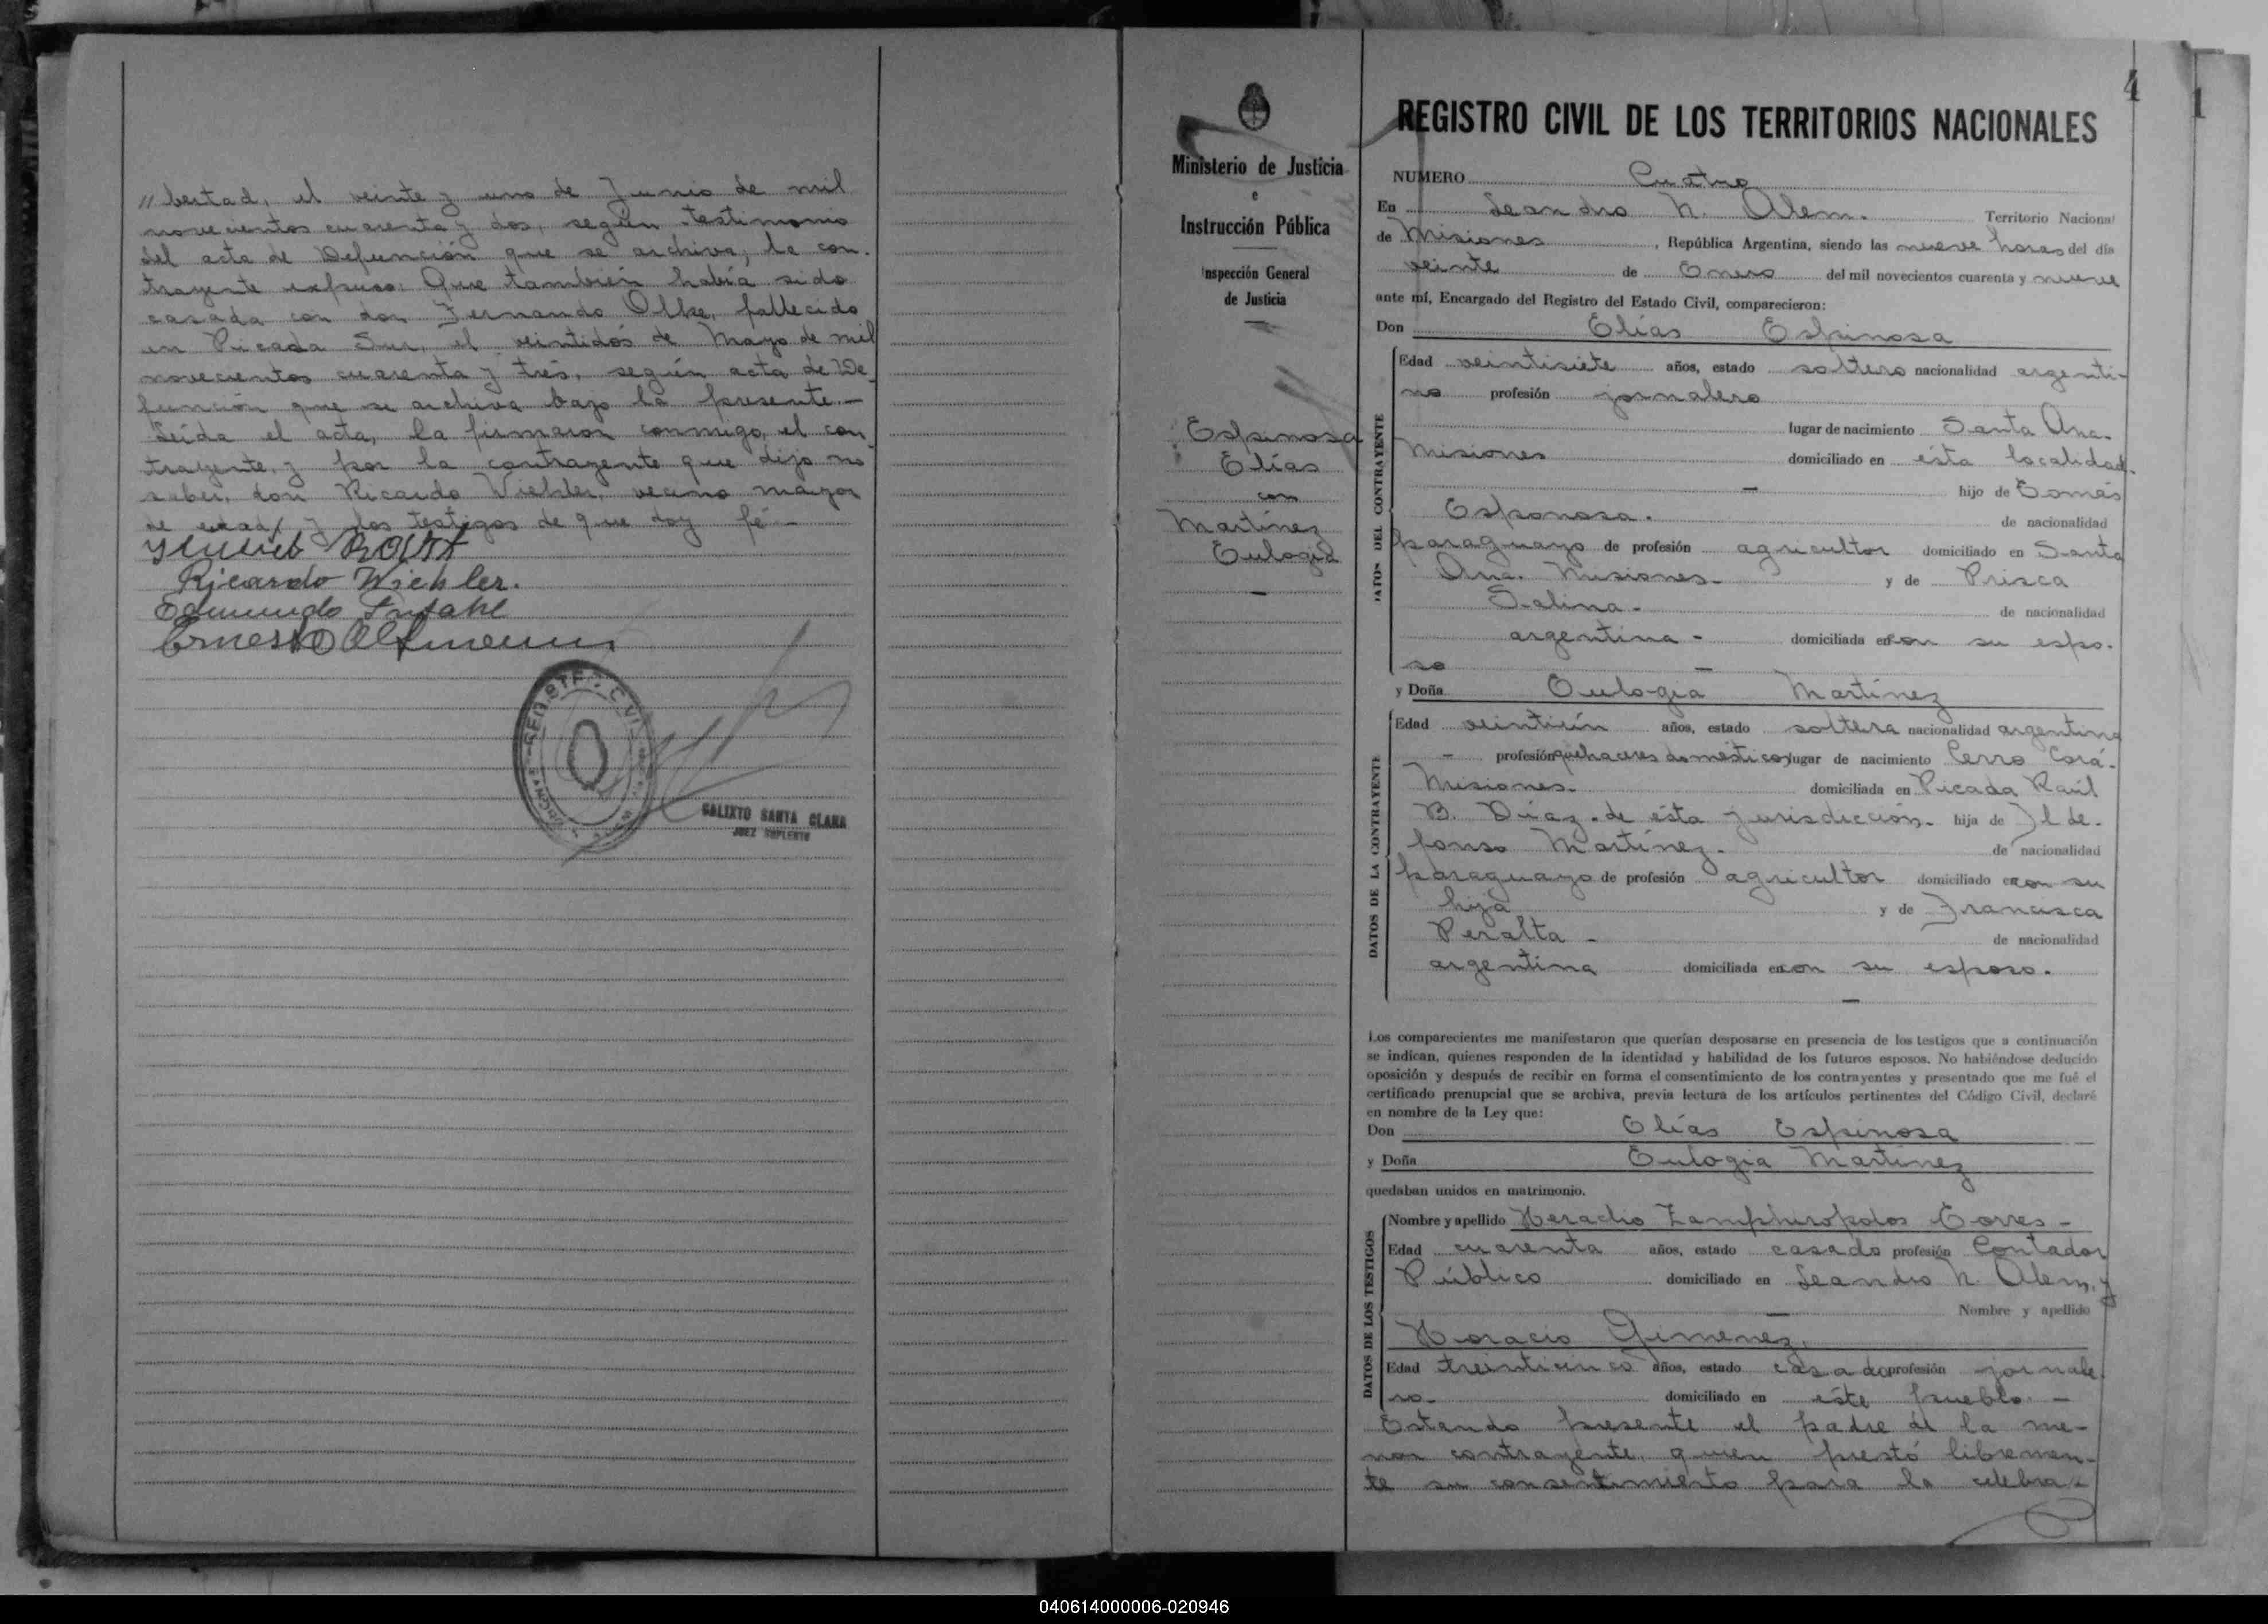 // bertad, el veinte y uno de Junio de mil
novecientos cuarenta y dos, según testimonio
del acta de Defunción que se archiva; la con-
trayente expuso: Que también había sido
casada con don Fernando Olke, fallecido
en Picada Sur, el veintidós de Mayo de mil
novecientos cuarenta y tres, según acta de De-
función que se archiva bajo la presente.-
Leída el acta, la firmaron conmigo, el con-
trayente, y por la contrayente que dijo no
saber, don Ricardo Wiehler, vecino mayor
de edad, y los testigos de que doy fé.-
Ricardo Wiehler.
Edmundo
Ernesto
CALIXTO SANTA CLARA
JUEZ SUPLENTE
Ministerio de Justicia
e
Instrucción Pública
Inspección General
de Justicia
Espinosa
Elías
con
Martínez
Eulogia
4
1
REGISTRO CIVIL DE LOS TERRITORIOS NACIONALES
NUMERO Cuatro
En Leandro N. Alem. Territorio Nacional
de Misiones, República Argentina, siendo las nueve horas del día
veinte de Enero del mil novecientos cuarenta y nueve
ante mí, Encargado del Registro del Estado Civil, comparecieron:
Don Elías Espinosa
DATOS DEL CONTRAYENTE
Edad veintisiete años, estado soltero nacionalidad argenti-
no profesión jornalero
lugar de nacimiento Santa Ana.
Misiones domiciliado en ésta localidad.
- hijo de Tomás
Esponosa. de nacionalidad
paraguayo de profesión agricultor domiciliado en Santa
Ana. Misiones- y de Prisca
Salina- de nacionalidad
argentina - domiciliada en con su espo.
so -
y Doña Eulogia Martínez
DATOS DE LA CONTRAYENTE
Edad veintiún años, estado soltera nacionalidad argentina
- profesión quehaceres domésticos lugar de nacimiento Cerro Corá-
Misiones. domiciliada en Picada Raúl
B. Díaz. de ésta jurisdicción- hija de Ilde-
fonso Martínez. de nacionalidad
paraguayo de profesión agricultor domiciliado en con su
hija y de Francisca
Peralta - de nacionalidad
argentina domiciliada en con su esposo.
-
Los comparecientes me manifestaron que querían desposarse en presencia de los testigos que a continuación
se indican, quienes responden de la identidad y habilidad de los futuros esposos. No habiéndose deducido
oposición y después de recibir en forma el consentimiento de los contrayentes y presentado que me fué el
certificado prenupcial que se archiva, previa lectura de los artículos pertinentes del Código Civil, declaré
en nombre de la Ley que:
Don Elías Espinosa
y Doña Eulogia Martínez
quedaban unidos en matrimonio.
DATOS DE LOS TESTIGOS
Nombre y apellido Heraclio Zamphiropolos Torres -
Edad cuarenta años, estado casado profesión Contador
Público domiciliado en Leandro N. Alem, y
- Nombre y apellido
Horacio Gimenez,
Edad treinticinco años, estado casado profesión jornale
ro- domiciliado en éste pueblo. -
Estando presente el padre de la me-
nor contrayente, quien prestó libremen-
te su consentimiento para la celebra-
040614000006-020946